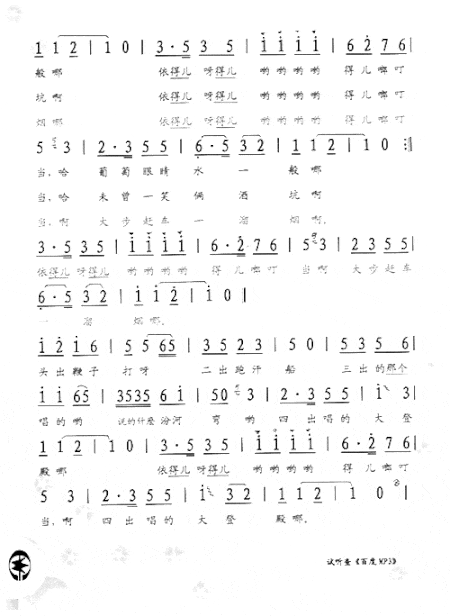 1 1 2 | 1 1 0 | 3·5 3 5 | i i i i | 6 2 7 6 |
般哪 依得儿 呀得儿 哟哟哟哟 得儿啷叮
坑啊 依得儿 呀得儿 哟哟哟哟 得儿啷叮
烟哪 依得儿 呀得儿 哟哟哟哟 得儿啷叮
5 3 | 2·3 5 5 | 6·5 3 2 | 1 1 2 | 1 0 :||
当,哈 葡萄眼睛 水一 般哪
当,哈 未曾一笑 俩酒 坑啊
当,啊 大步赶车 一溜 烟啊,
3·5 3 5 | i i i i | 6·2 7 6 | 5 3 | 2 3 5 5 |
依得儿呀得儿 哟哟哟哟 得儿啷叮 当啊 大步赶车
6·5 3 2 | 1 1 2 | 1 0 |
一溜 烟哪。
i 2 i 6 | 5 6 5 | 3 5 2 3 | 5 0 | 5 3 5 6 |
头出鞭子 打呀 二出跑汗 船 三出的那个
i i 6 5 | 3535 6 i | 3 50 | 2 3 5 5 | i 3 |
唱的哟 说的什麽汾河 弯哟 四出唱的 大登
1 1 2 | 1 0 | 3·5 3 5 | i i i i | 6·2 7 6 |
殿哪 依得儿呀得儿 哟哟哟哟 得儿啷叮
5 3 | 2·3 5 5 | i 3 2 | 1 1 2 | 1 0 |
当,啊 四出唱的 大登 殿哪.
试听曼《百度MP3》